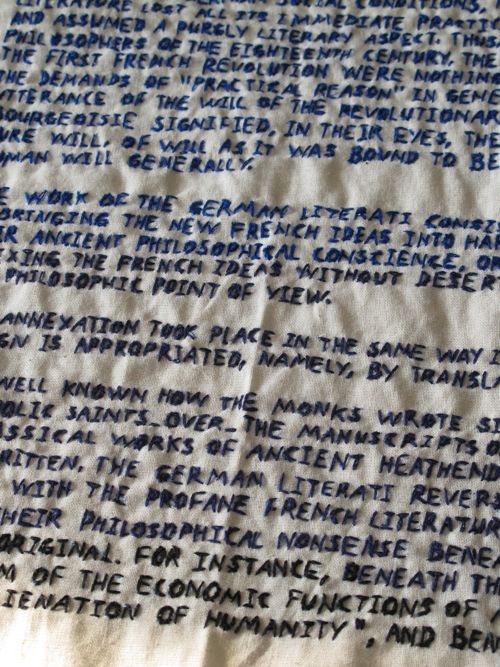 LITERATURE LOST ALL ITS IMMEDIATE PRACTI
AND ASSUMED A PURELY LITERARY ASPECT. THUS
PHILOSOPHERS OF THE EIGHTEENTH CENTURY, THE
THE FIRST FRENCH REVOLUTION WERE NOTHING
THE DEMANDS OF "PRACTICAL REASON" IN GENE
UTTERANCE OF THE WILL OF THE REVOLUTIONAR
BOURGEOISIE SIGNIFIED, IN THEIR EYES, THE
URE WILL, OF WILL AS IT WAS BOUND TO BE
UMAN WILL GENERALLY.
E WORK OF THE GERMAN LITERATI CONSIS
BRINGING THE NEW FRENCH IDEAS INTO HAR
IR ANCIENT PHILOSOPHICAL CONSCIENCE, OR
EXING THE FRENCH IDEAS WITHOUT DESERT
PHILOSOPHIC POINT OF VIEW.
ANNEXATION TOOK PLACE IN THE SAME WAY I
GN IS APPROPRIATED, NAMELY, BY TRANSLA
WELL KNOWN HOW THE MONKS WROTE SI
OLIC SAINTS_OVER_THE MANUSCRIPTS O
ASSICAL WORKS OF ANCIENT HEATHEND
RITTEN. THE GERMAN LITERATI REVERS
WITH THE PROFANE FRENCH LITERATUR
THEIR PHILOSOPHICAL NONSENSE BENEA
ORIGINAL. FOR INSTANCE, BENEATH TH
M OF THE ECONOMIC FUNCTIONS OF
IENATION OF HUMANITY", AND BEN